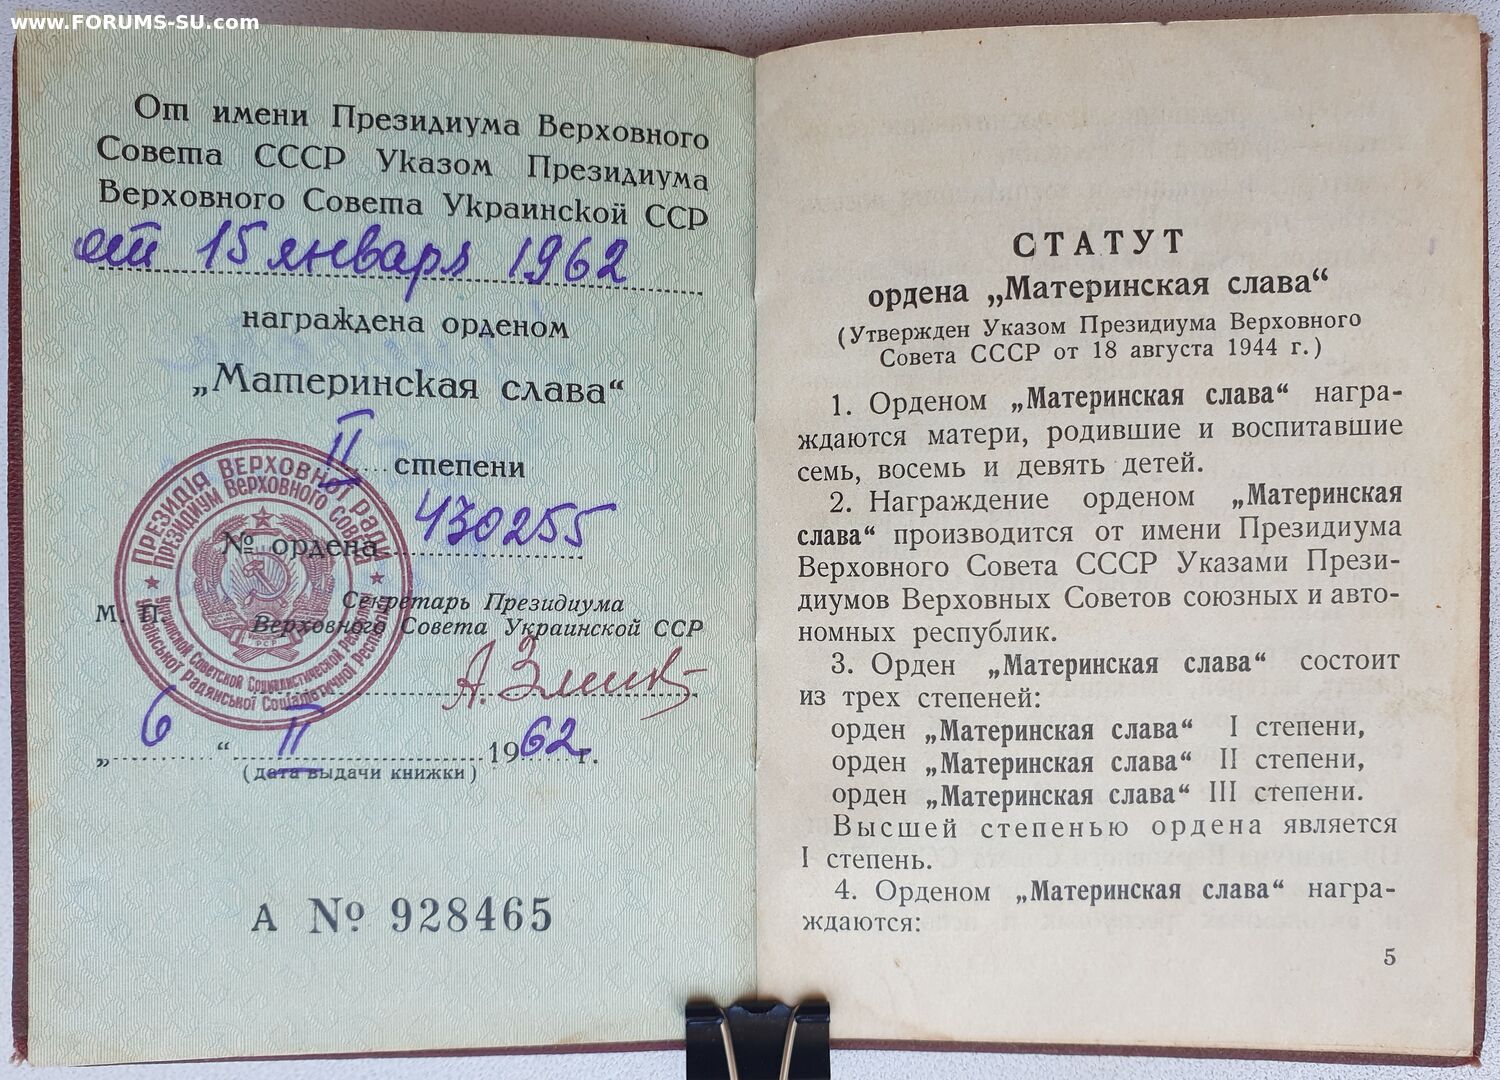 www.FORUMS-SU.com
От имени Президиума Верховного
Совета СССР Указом Президиума
Верховного Совета Украинской ССР
от 15 января 1962
награждена орденом
„Материнская слава“
II степени
№ ордена 430255
Секретарь Президиума
М. П. Верховного Совета Украинской ССР
„6“ II 1962 г.
(дата выдачи книжки)
А № 928465
ПРЕЗИДІЯ ВЕРХОВНОЇ РАДИ
ПРЕЗИДИУМ ВЕРХОВНОГО СОВЕТА
Украинской Советской Социалистической
Української Радянської Соціалістичної Республіки
СТАТУТ
ордена „Материнская слава“
(Утвержден Указом Президиума Верховного
Совета СССР от 18 августа 1944 г.)
1. Орденом „Материнская слава“ награ-
ждаются матери, родившие и воспитавшие
семь, восемь и девять детей.
2. Награждение орденом „Материнская
слава“ производится от имени Президиума
Верховного Совета СССР Указами Прези-
диумов Верховных Советов союзных и авто-
номных республик.
3. Орден „Материнская слава“ состоит
из трех степеней:
орден „Материнская слава“ I степени,
орден „Материнская слава“ II степени,
орден „Материнская слава“ III степени.
Высшей степенью ордена является
I степень.
4. Орденом „Материнская слава“ награ-
ждаются:
5